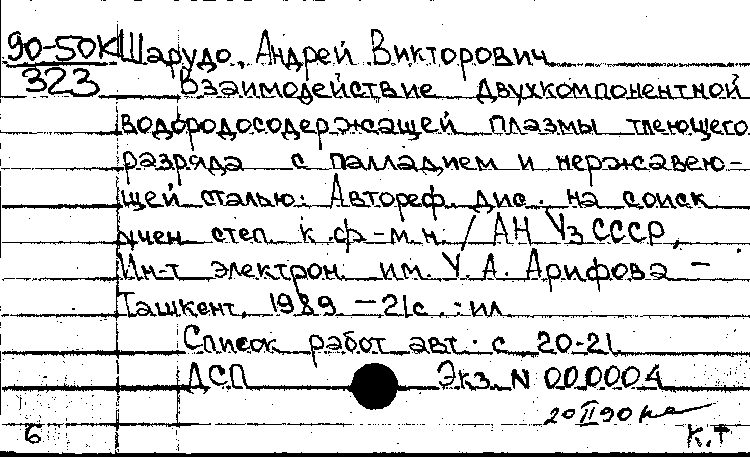 90-50К Шарудо, Андрей Викторович
323 Взаимодействие двухкомпонентной
водородосодержащей плазмы тлеющего
разряда с палладием и нержавею-
щей сталью: Автореф. дис. на соиск
учен. степ. к.ф-м.н. / АН УзССР,
Ин-т электрон. им. У. А. Арифова -
Ташкент, 1989 - 21с. : ил
Список работ авт. с 20-21
ДСП Экз. N 000004
20 II 90
6 К.Т